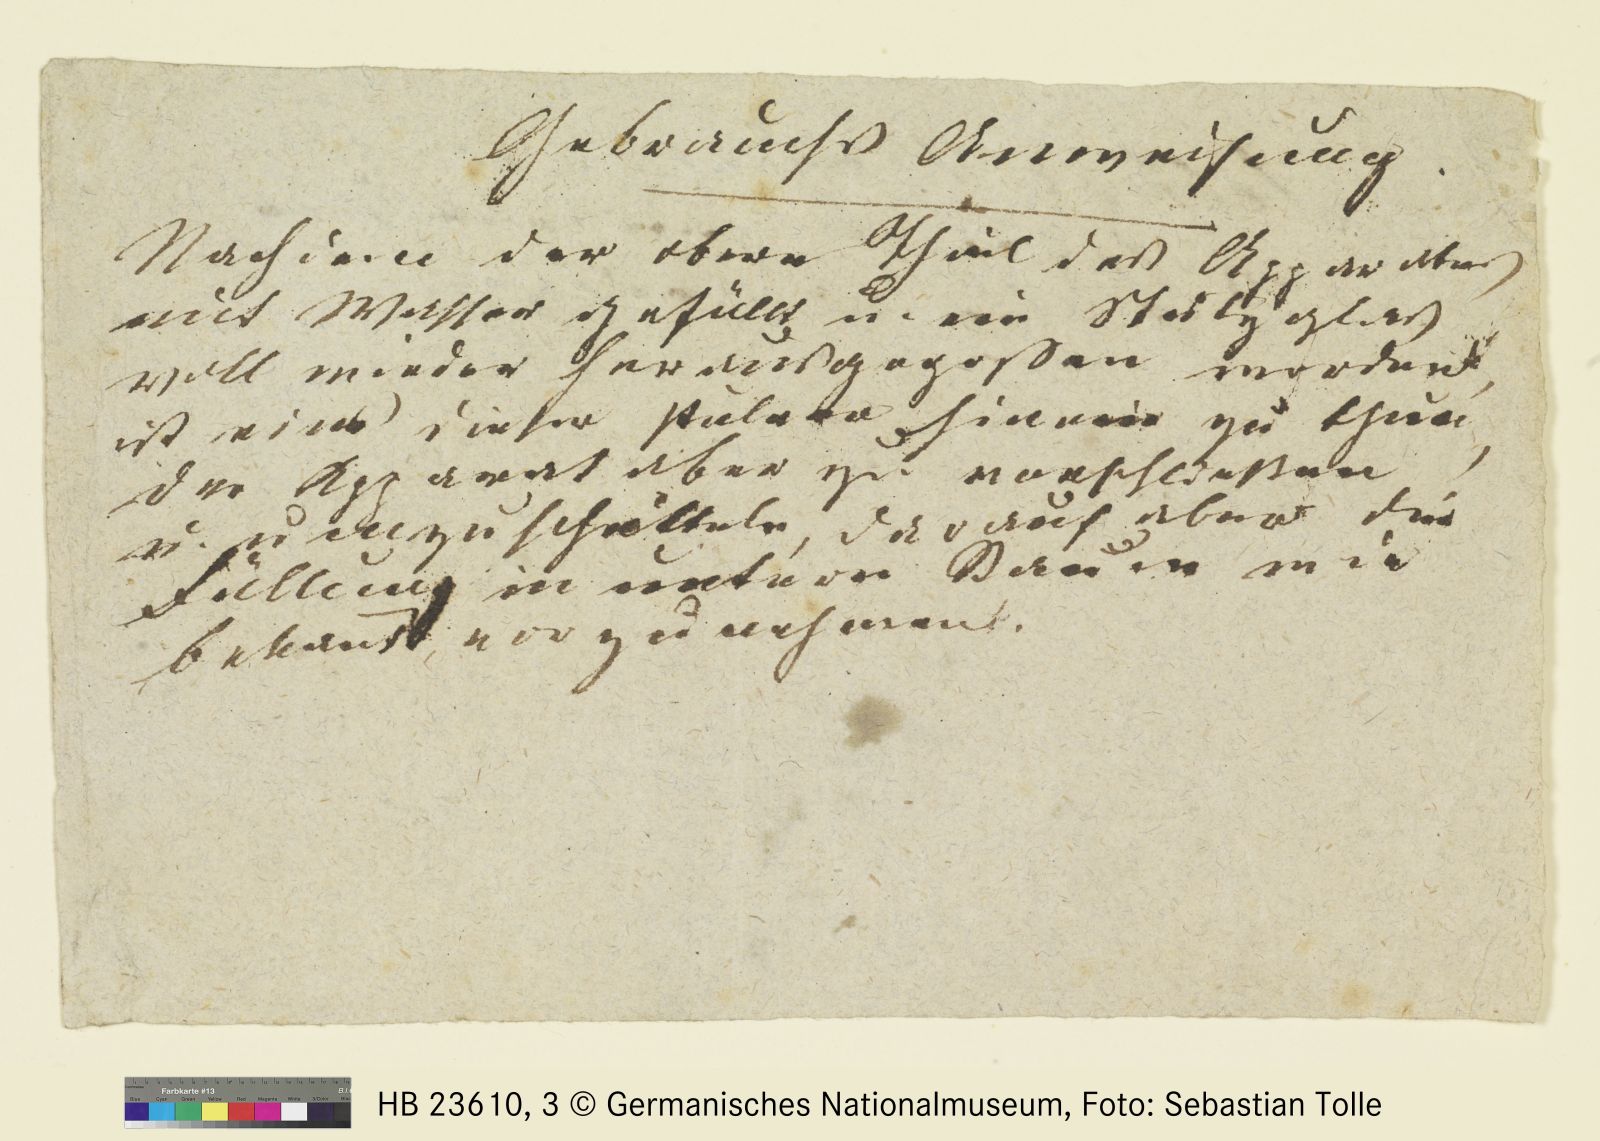 Gebrauchs Anweisung.
Nachdem der obere Theil des Apparates
mit Wasser gefüllt u. ein Stutzglas
voll wieder herausgegossen worden,
ist eins dieser Pulver hinein zu thun,
der Apparat aber zu verschließen,
u. umzuschütteln, darauf aber die
Füllung in untern Raum wie
bekant, vorzunehmen.
Farbkarte #13
Blue Cyan Green Yellow Red Magenta White 3/Color
HB 23610, 3 © Germanisches Nationalmuseum, Foto: Sebastian Tolle